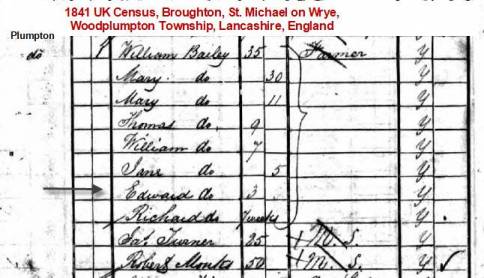 1841 UK Census, Broughton, St. Michael on Wrye,
Woodplumpton Township, Lancashire, England
Plumpton
do 1 William Bailey 35 Farmer Y
Mary do 30 Y
Mary do 11 Y
Thomas do 9 Y
William do 7 Y
Jane do 5 Y
Edward do 3 Y
Richard do 7 weeks Y
Turner 25 M. S. Y
Robert Monks 50 M. S. Y